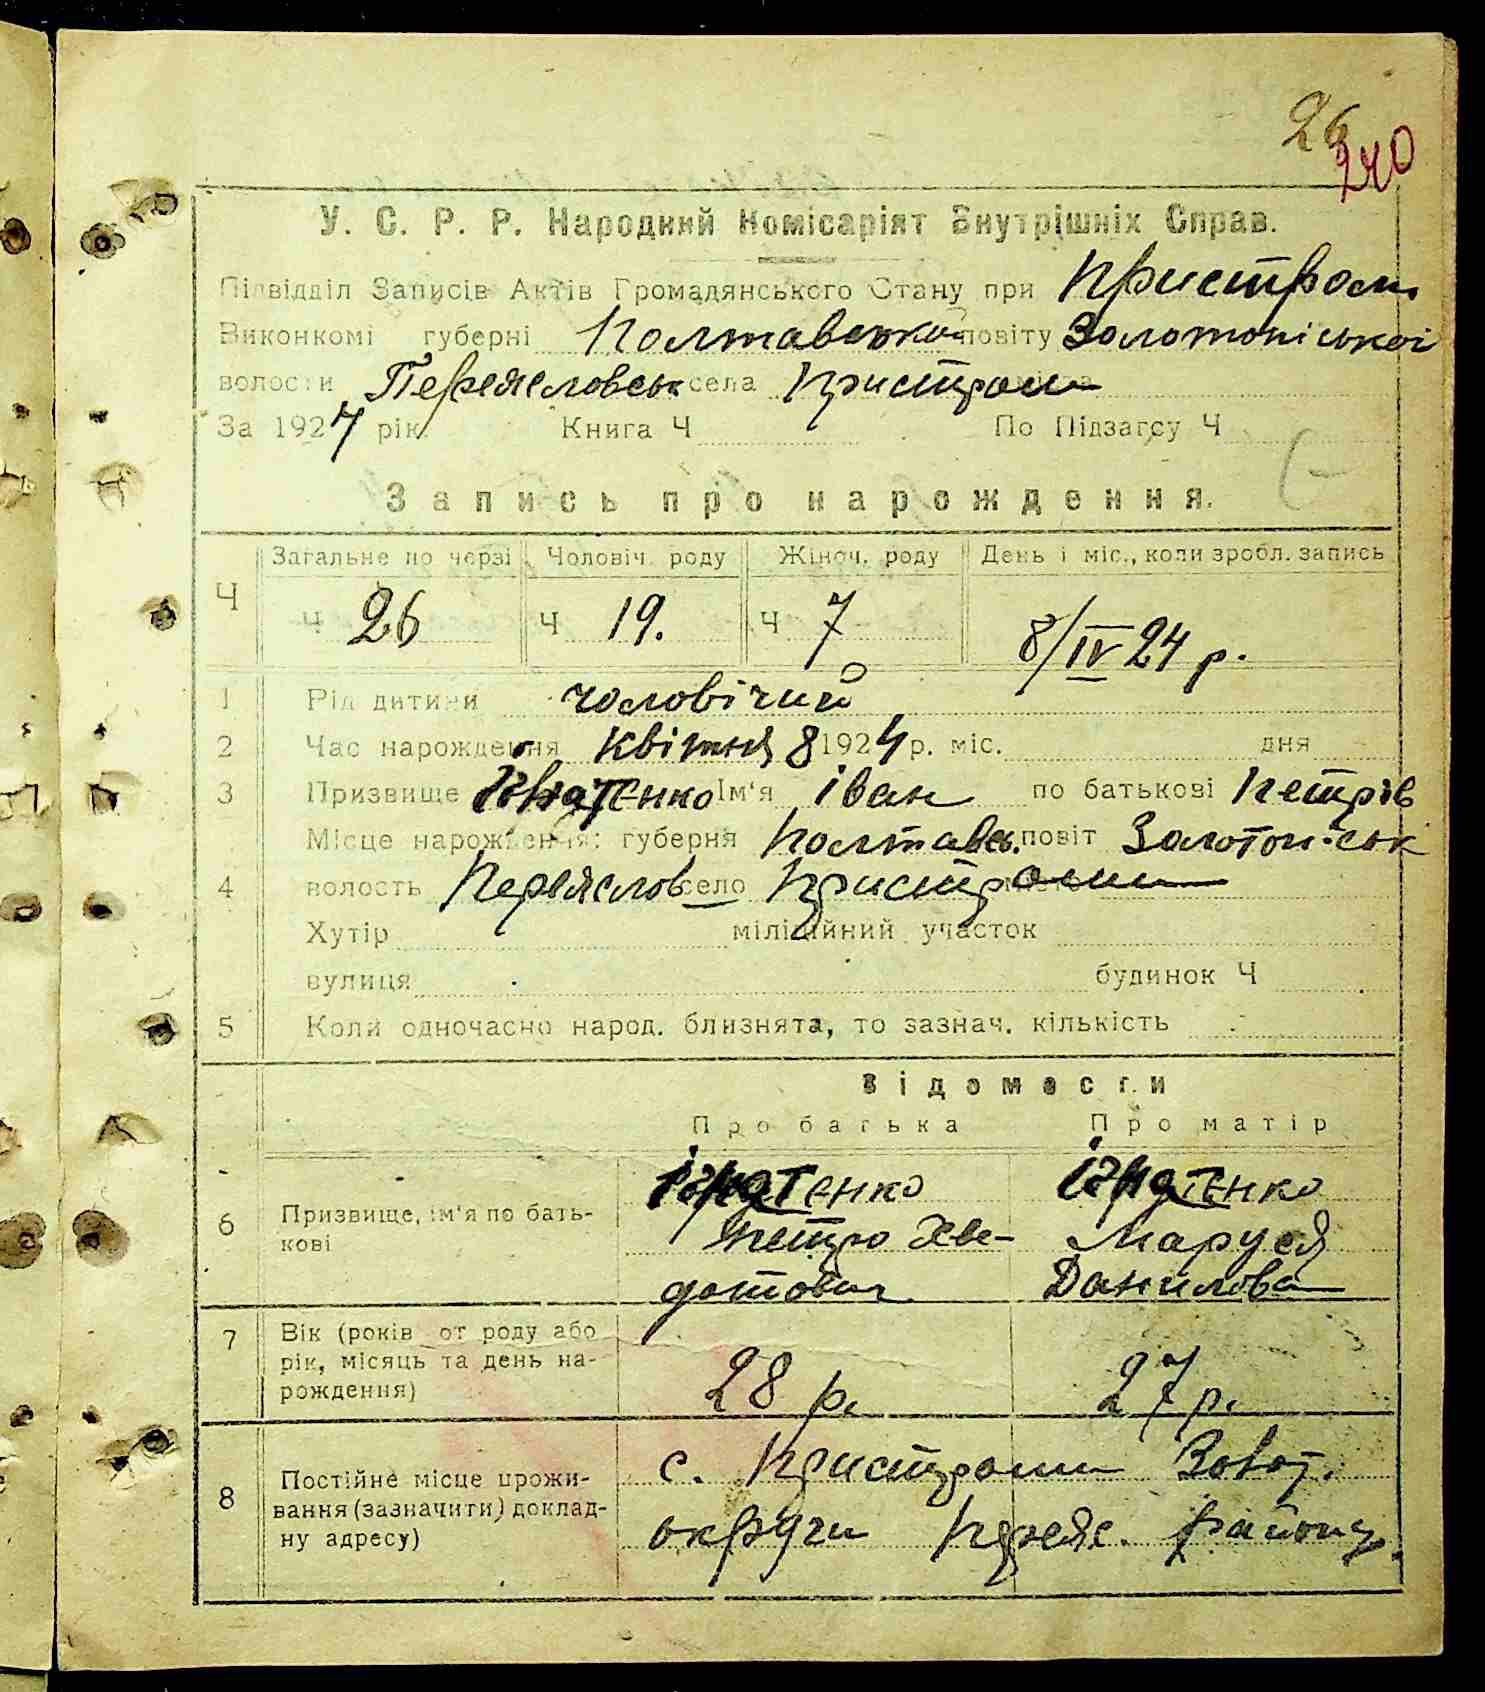 26
240
У. С. Р. Р. Народний Комісаріят Внутрішніх Справ.
Підвідділ Записів Актів Громадянського Стану при Пристром
Виконкомі губерні Полтавської повіту Золотоніської
волости Переяславськ села Пристром
За 1924 рік. Книга Ч По Підзагсу Ч
Запись про нарождення.
Ч Загальне по черзі Чоловіч. роду Жіноч. роду День і міс., коли зробл. запись
Ч 26 Ч 19. Ч 7 8/IV 24 р.
1 Рід дитини чоловічий
2 Час нарождення квітня 8 1924 р. міс. дня
3 Призвище Ігнатенко Ім'я іван по батькові Петрів
Місце нарождення: губерня Полтавсь. повіт Золотоніськ
4 волость Переяслов село Пристроми
Хутір міліційний участок
вулиця будинок Ч
5 Коли одночасно народ. близнята, то зазнач. кількість
Відомости
Про батька Про матір
6 Призвище, ім'я по бать-
кові
ігнатенко
Петро Хве-
дотович
ігнатенко
Маруся
Данилова
7 Вік (років от роду або
рік, місяць та день на-
рождення)
28 р. 27 р.
8 Постійне місце прожи-
вання (зазначити) доклад-
ну адресу)
с. Пристроми Золот.
округи Переяс. району.